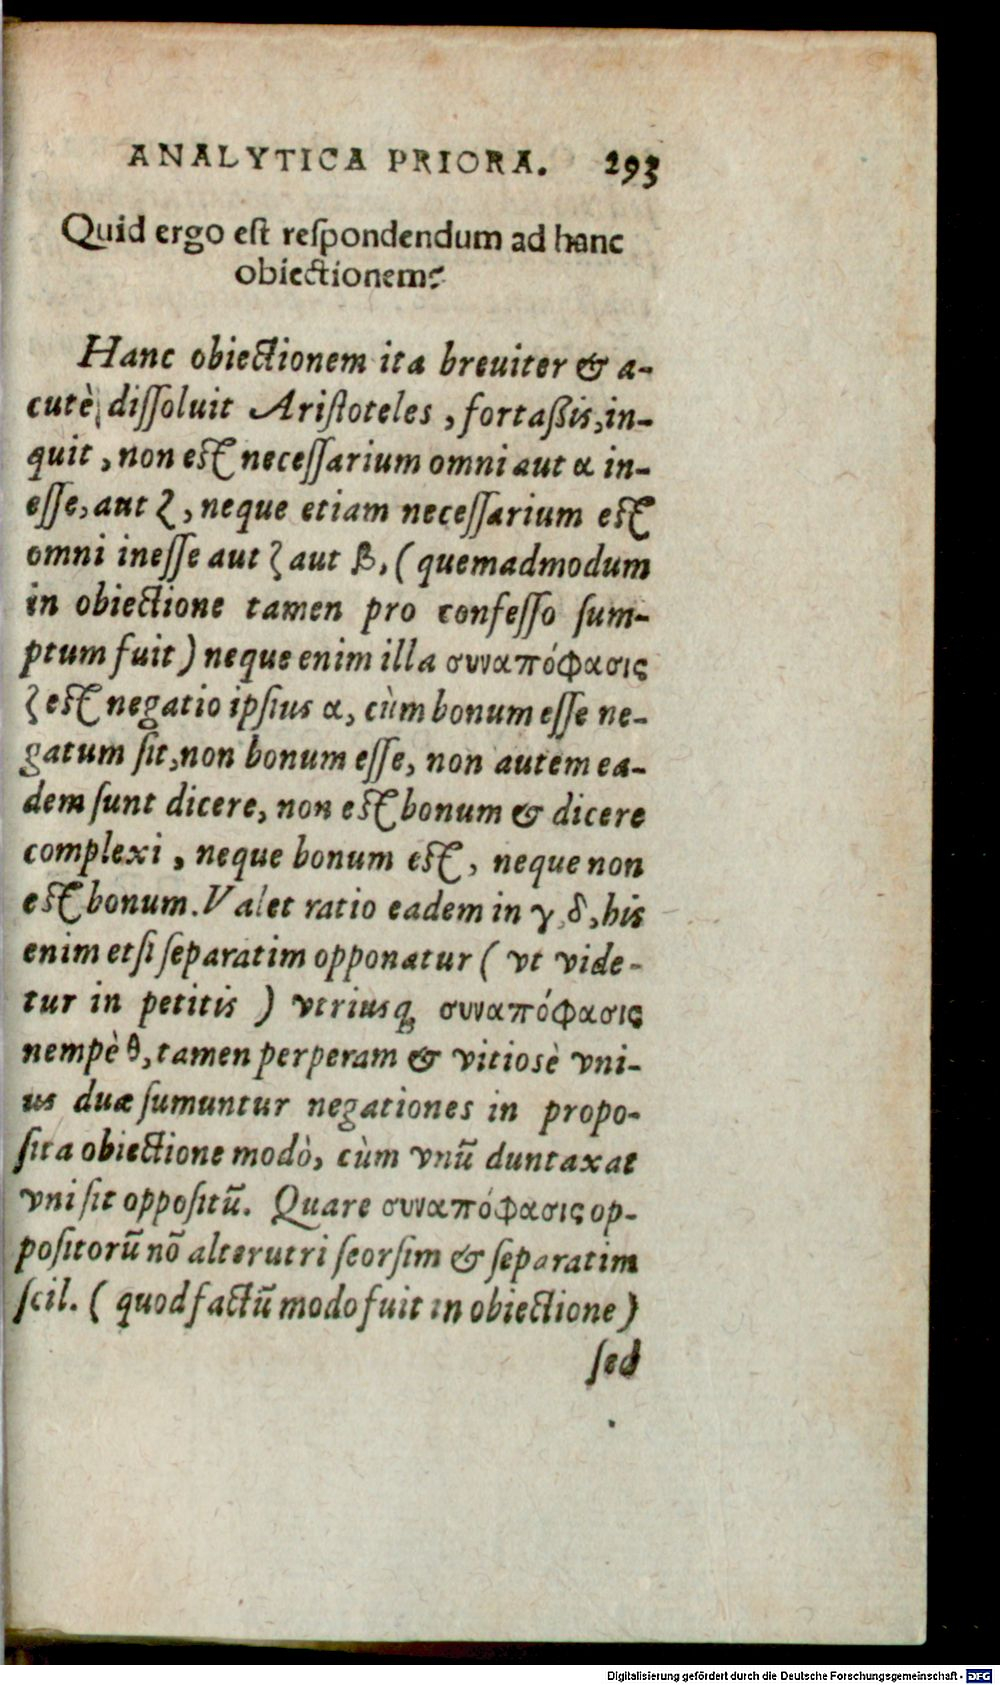 ANALYTICA PRIORA. 293
Quid ergo eſt reſpondendum ad hanc
obiectionem?
Hanc obiectionem ita breuiter & a-
cutè diſſoluit Ariſtoteles, fortaßis, in-
quit, non eſt neceſſarium omni aut α in-
eſſe, aut ζ, neque etiam neceſſarium eſt
omni ineſſe aut ζ aut β, (quemadmodum
in obiectione tamen pro confeſſo ſum-
ptum fuit) neque enim illa συναπόφασις
ζ eſt negatio ipſius α, cùm bonum eſſe ne-
gatum ſit, non bonum eſſe, non autem ea-
dem ſunt dicere, non eſt bonum & dicere
complexi, neque bonum eſt, neque non
eſt bonum. Valet ratio eadem in γ, δ, his
enim etſi ſeparatim opponatur (vt vide-
tur in petitis) vtriusq; συναπόφασις
nempè θ, tamen perperam & vitiosè vni-
us duæ ſumuntur negationes in propo-
ſita obiectione modò, cùm vnũ duntaxat
vni ſit oppoſitũ. Quare συναπόφασις op-
poſitorũ nõ alterutri ſeorſim & ſeparatim
ſcil. (quod factũ modo fuit in obiectione)
ſed
Digitalisierung gefördert durch die Deutsche Forschungsgemeinschaft - DFG